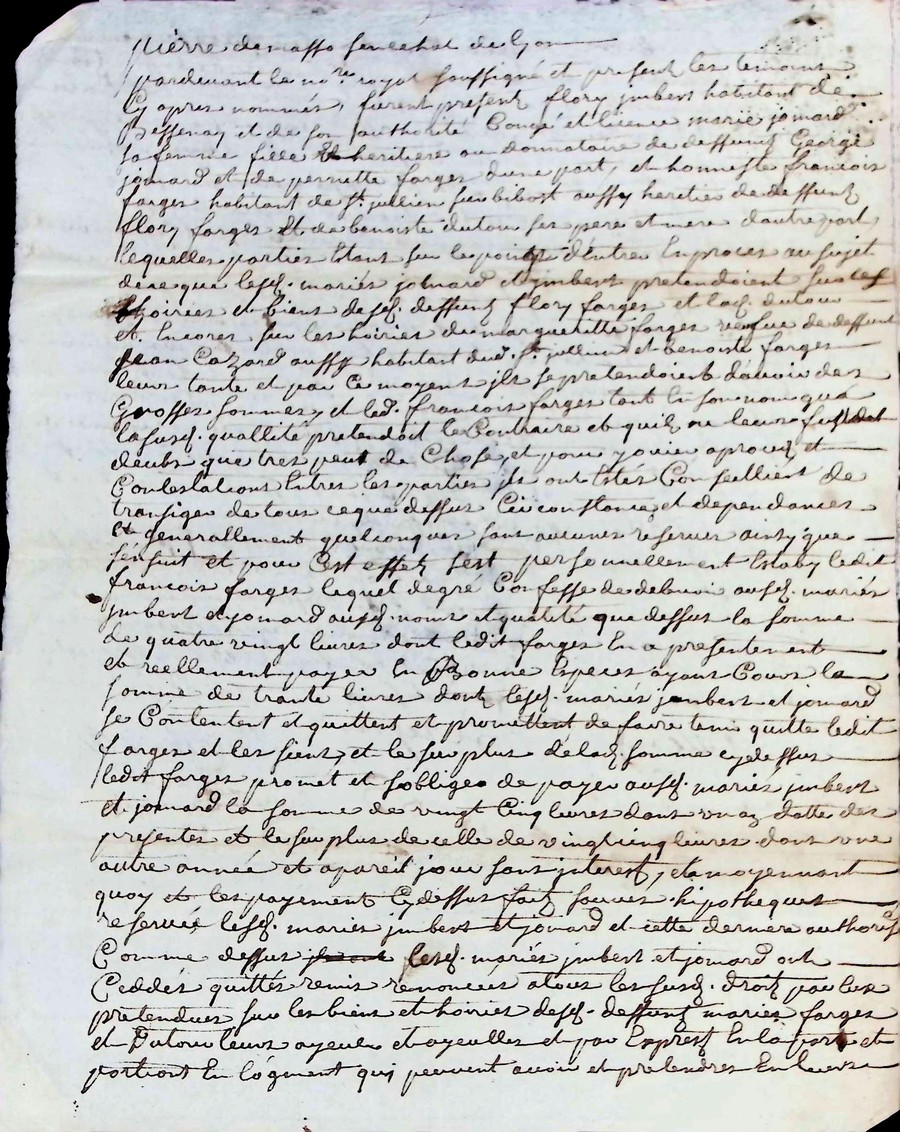 pierre demasso senechal de Lyon
pardevant le nore royal soussigné et present les temoins
Cy apres nommés, furent present flory jmbert habitant de
Bessenay et de son authorité Congé et licence marie jomard
sa femme fille et heritiere ou donnataire de deffunts George
jomard et de pernette farges dune part, et honneste francois
farges habitant de St jullien sur bibost aussy heritier de deffunt
flory farges Et de benoiste dutour ses pere et mere dautre part,
lequelles parties Estant sur le point d'entrer En proces au sujet
de ce que lesd. mariés jomard et jmbert pretendoient sur les
hoiries et biens desd. deffunt flory farges et lad. dutour
et Encores sur les hoiries de marguetitte farges vefve de deffunt
jean Cazard aussy habitant dud. St jullien et benoiste farges
leurs tante et par ce moyent jls se pretendoient davoir des
Grosses sommes, et led. francois farges tant en son nom qua
la susd. quallité pretendoit le Contraire et quil ne leurs fust
deubt que tres peut de Chose, et pour y ovier a proces et
Contestations Entres les parties jls ont Estés Conseillient de
transiger de tous ce que dessus Circonstance et dependances
et generallement quelconques sans aucunes reserves ainsy que
sensuit et pour Cest effet sest personnellement Estably ledit
francois farges lequel de gré Confesse de debvoir ausd. mariés
jmbert et jomard ausd. noms et qualité que dessus la somme
de quatre vingt livres dont ledit farges En a presentement
et reellement payer En Bonne Especes ayant Cours la
somme de trante livres dont lesd. mariés jmbert et jomard
se Contentent et quittent et promettent de faire tenir quitte ledit
farges et les siens, et le surplus de lad. somme cy dessus
ledit farges promet et soblige de payer ausd. mariés jmbert
et jomard la somme de vingt Cinq livres dans un an datte des
presentes et le surplus de celle de vingt cinq livres dans une
autre année et a pareil jour sans interest, et a moyennant
quoy et les payement Cy dessus fait sauves hipotheques
reservée lesd. mariés jmbert et jomard et cette derniere authorisé
Comme dessus lesd. mariés jmbert et jomard ont
Ceddés quittés remis renoncés a tous les susd. droit par eux
pretendues sur les biens et hoiries desd. deffunt mariés farges
et Dutour leurs ayeux et ayeulles et par Expres En la part et
portiont En logment quj peuvent avoir et pretendres En leurs